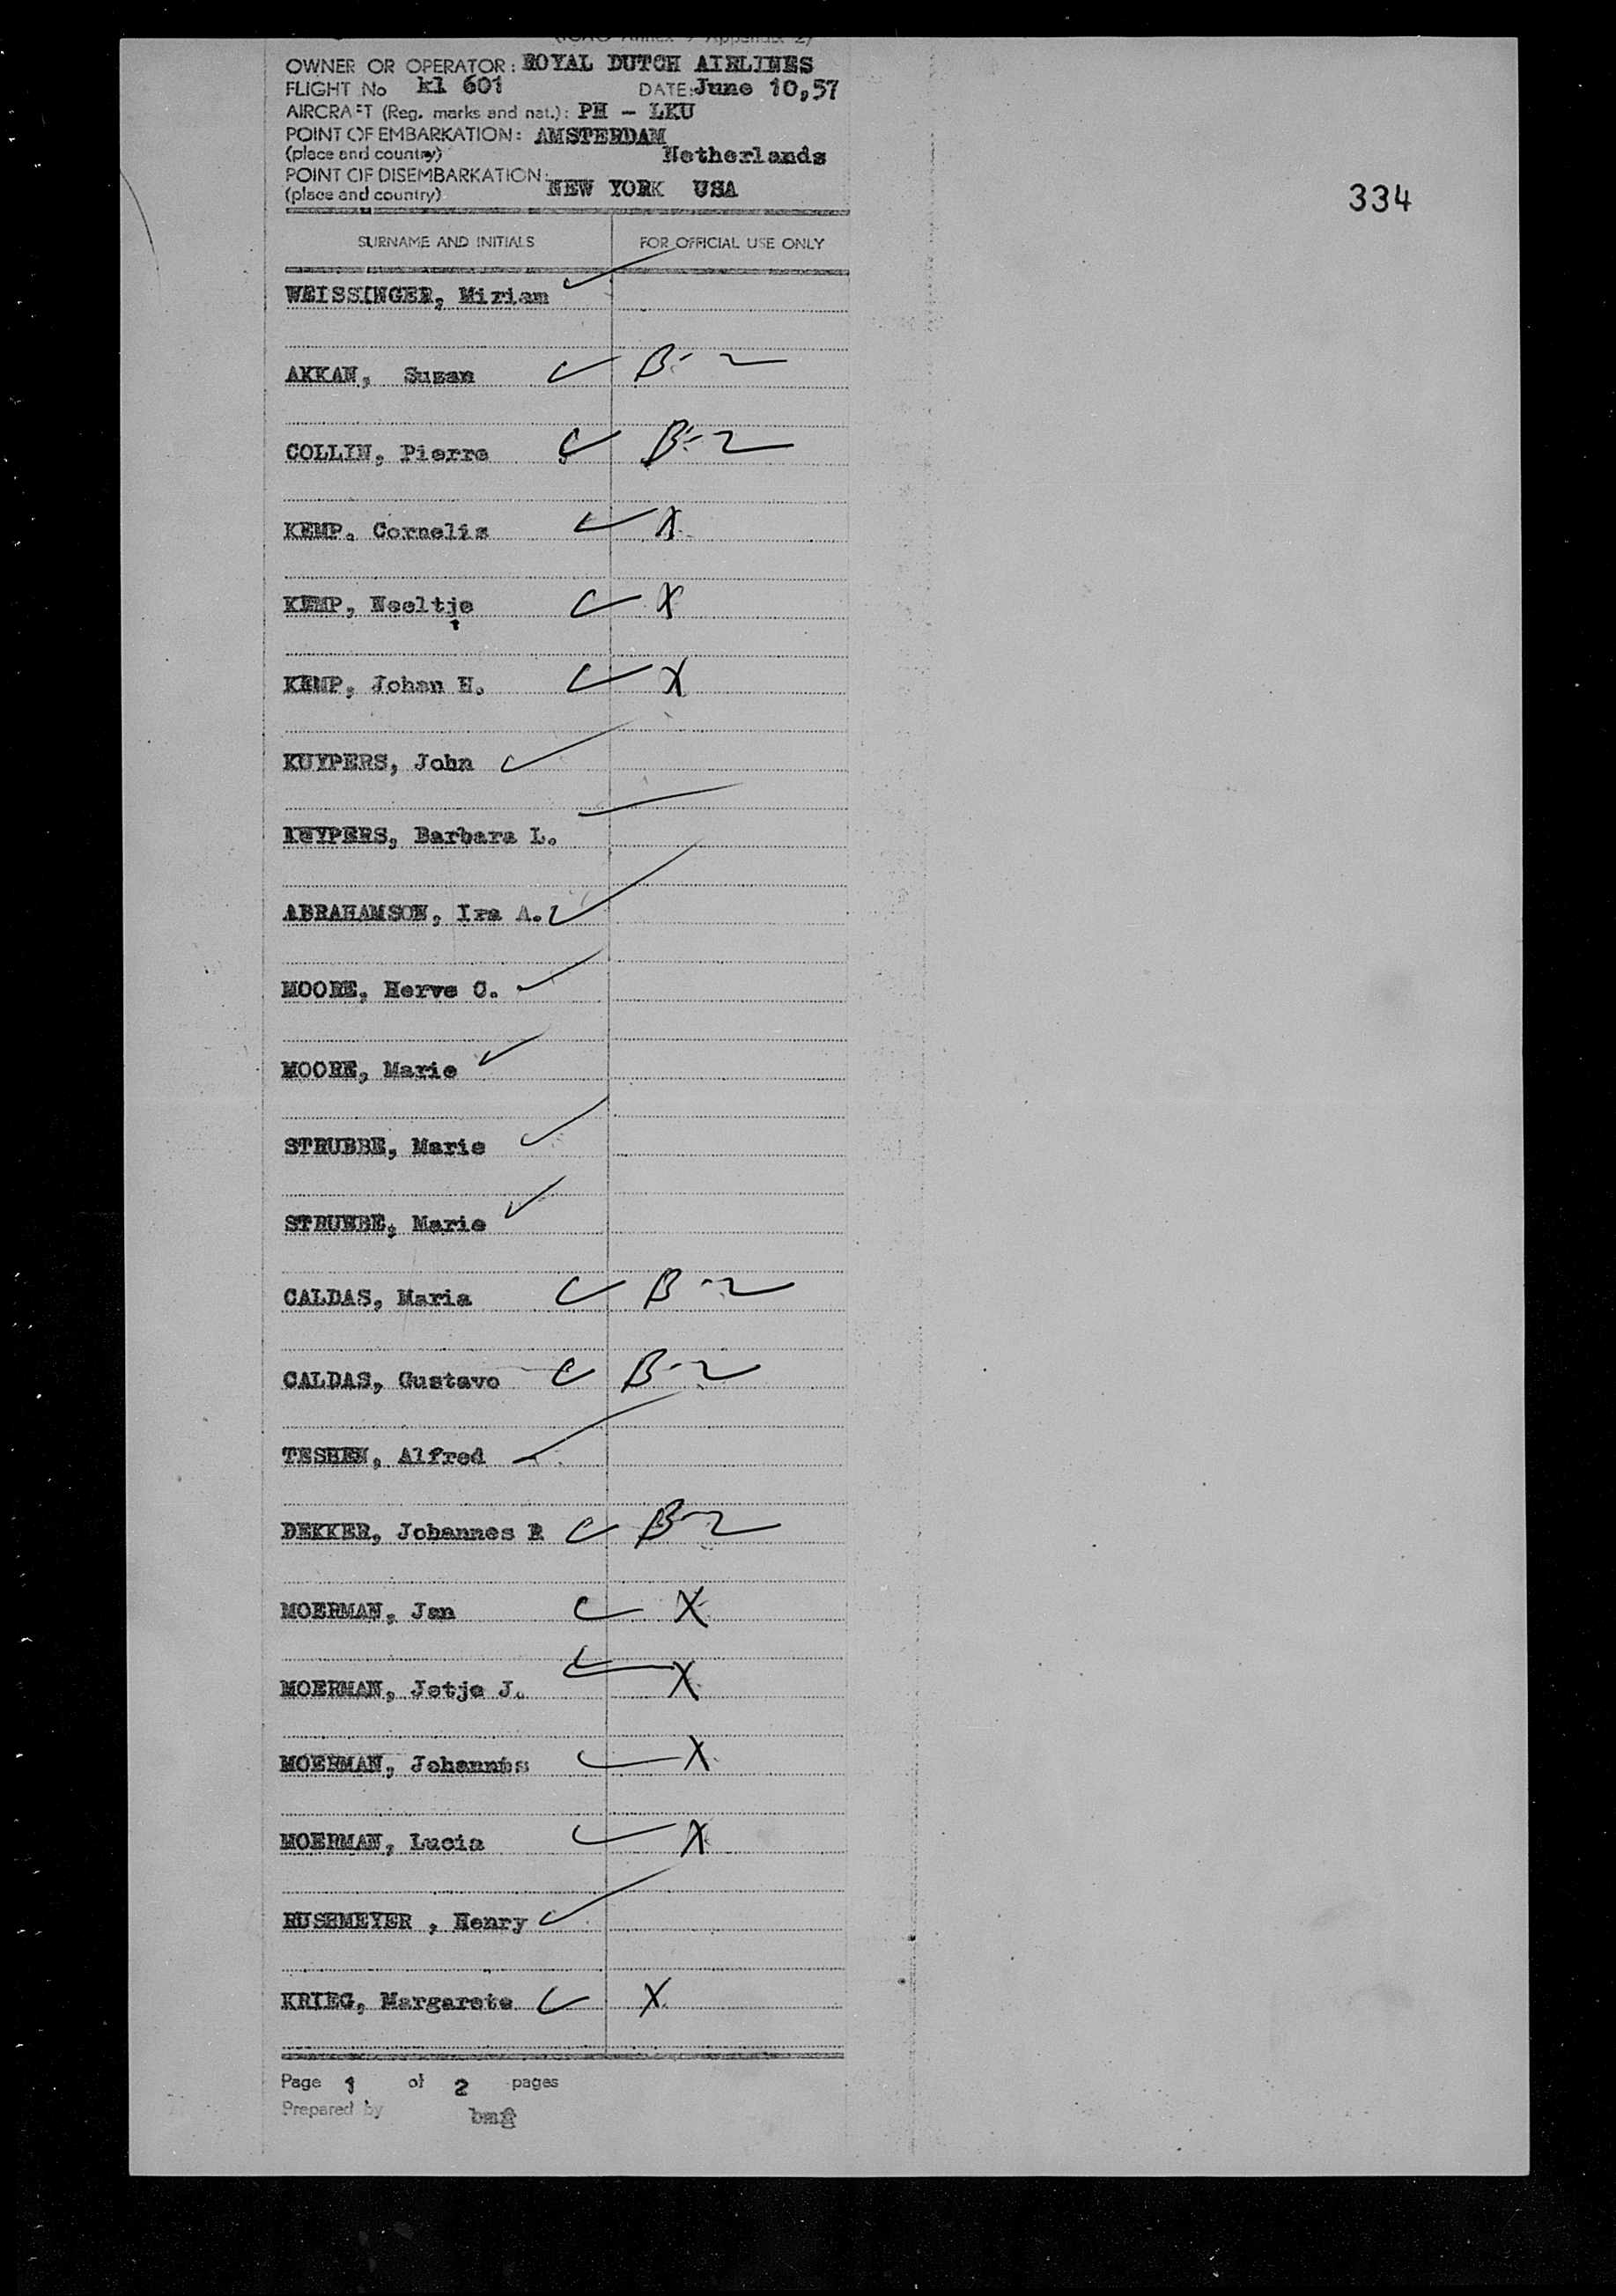 (ICAO Annex 9 Appendix 2)
OWNER OR OPERATOR: ROYAL DUTCH AIRLINES
FLIGHT No kl 601 DATE: June 10,57
AIRCRAFT (Reg. marks and nat.): PH - LKU
POINT OF EMBARKATION: AMSTERDAM
(place and country) Netherlands
POINT OF DISEMBARKATION:
(place and country) NEW YORK USA
334
SURNAME AND INITIALS FOR OFFICIAL USE ONLY
WEISSINGER, Miriam
AKKAN, Suzan B-2
COLLIN, Pierre B-2
KEMP, Cornelis X
KEMP, Neeltje X
KEMP, Johan H. X
KUYPERS, John
KUYPERS, Barbara L.
ABRAHAMSON, Ira A.
MOORE, Herve C.
MOORE, Marie
STRUBBE, Marie
STRUBBE, Marie
CALDAS, Maria B-2
CALDAS, Gustavo B-2
Alfred
DEKKER, Johannes R B-2
MOERMAN, Jan X
MOERMAN, Jetje J. X
MOERMAN, Johannes X
MOERMAN, Lucia X
RUSHMEYER , Henry
KRIEG, Margarete X
Page 1 of 2 pages
Prepared by bmg